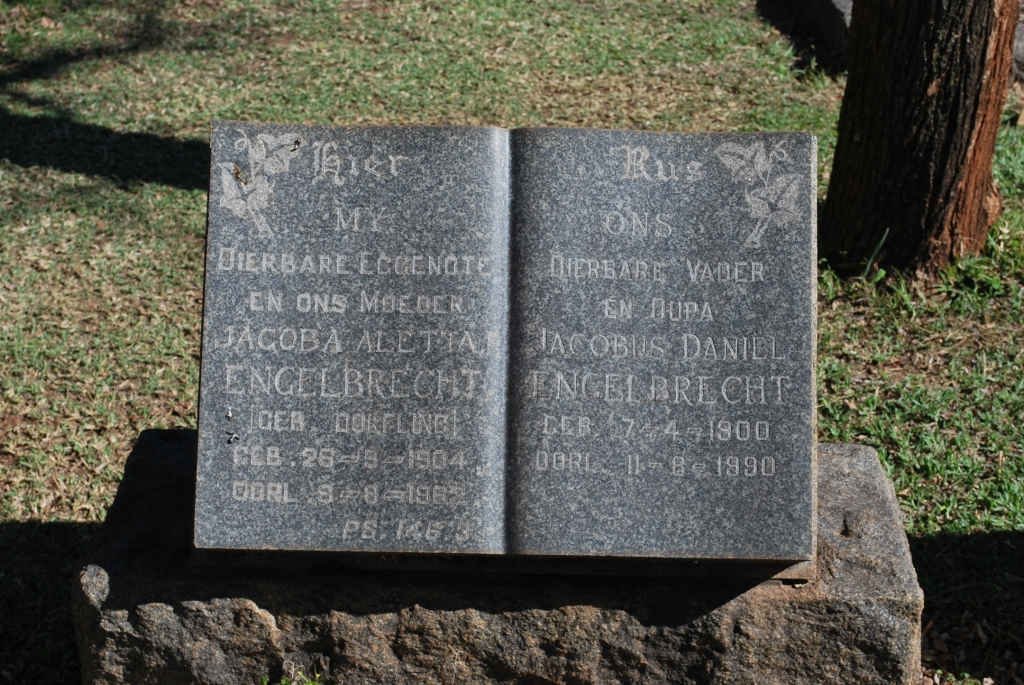 Hier
MY
DIERBARE EGGENOTE
EN ONS MOEDER
JACOBA ALETTA
ENGELBRECHT
[GEB DORFLING]
GEB. 26-9-1904
OORL. 9-8-1982
PS. 146:5
Rus
ONS
DIERBARE VADER
EN OUPA
JACOBUS DANIEL
ENGELBRECHT
GEB. 7-4-1900
OORL. 11-8-1990